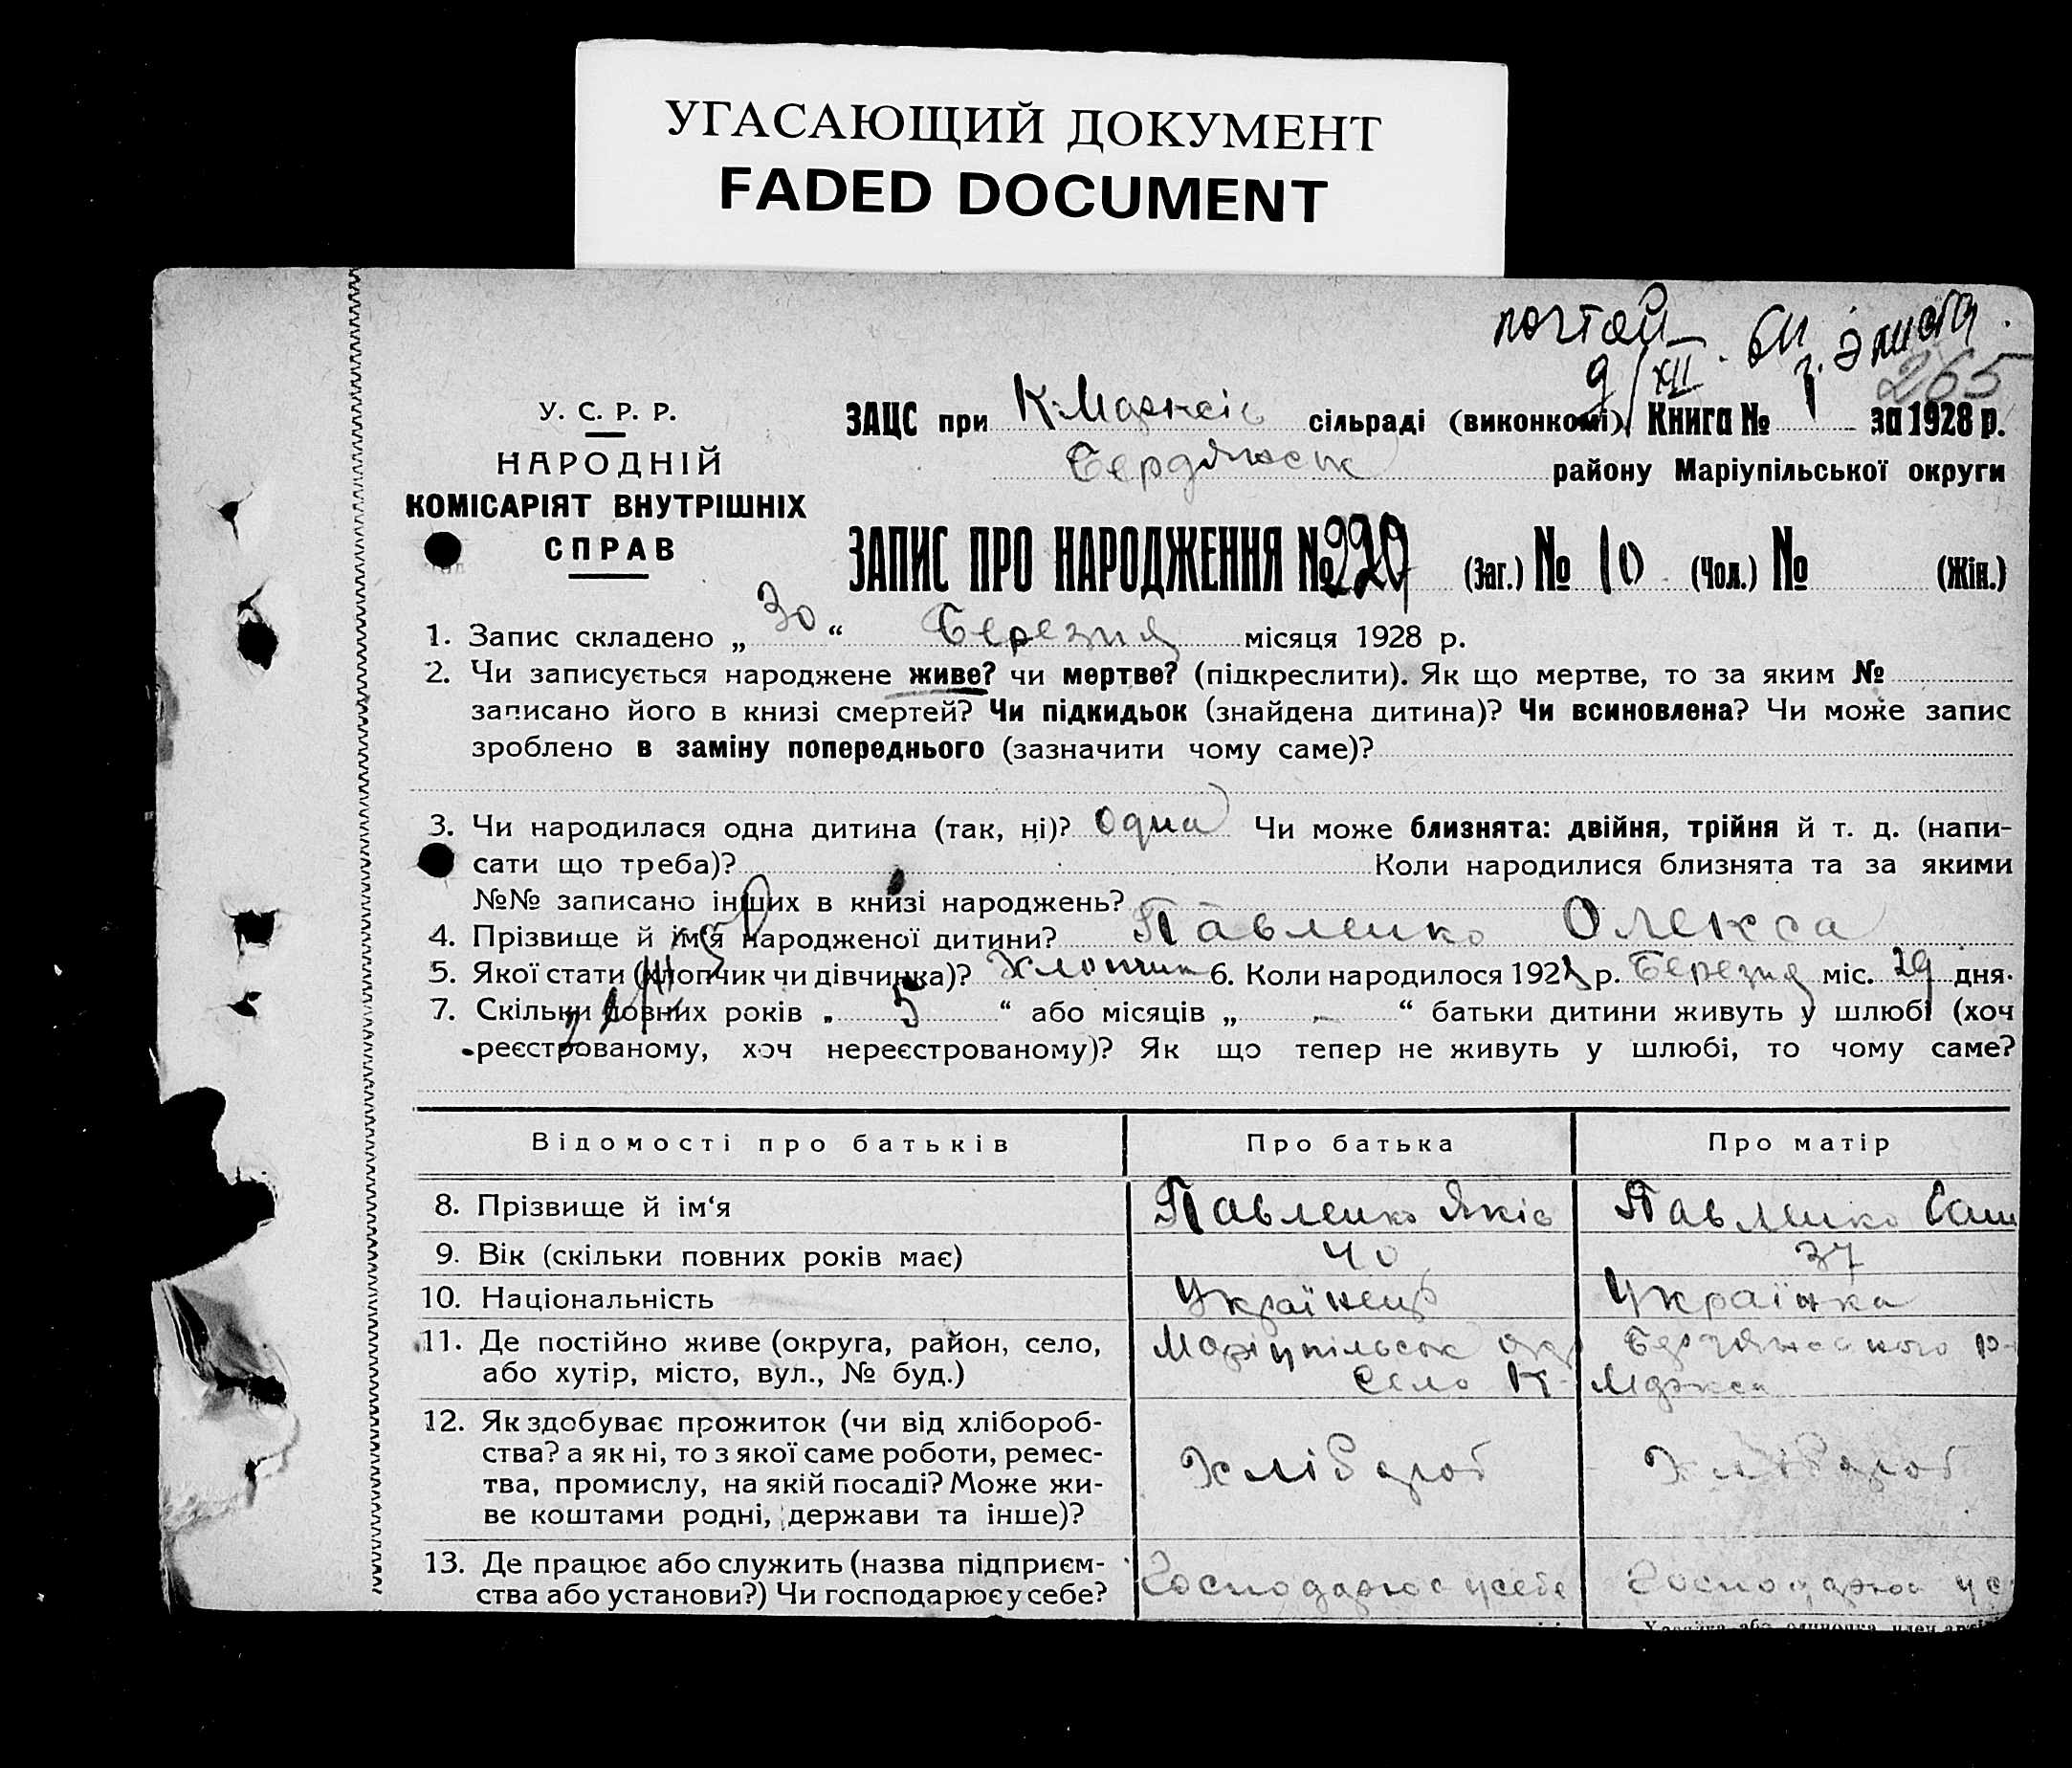 УГАСАЮЩИЙ ДОКУМЕНТ
FADED DOCUMENT
265
У. С. Р. Р.
НАРОДНІЙ
КОМІСАРІЯТ ВНУТРІШНІХ
СПРАВ
ЗАЦС при К-Марксів сільраді (виконкомі). Книга № 1 за 1928 р.
Бердянськ району Маріупільської округи
ЗАПИС ПРО НАРОДЖЕННЯ № (Заг.) № 10 (Чол.) № (Жін.)
1. Запис складено „ 30 “ Березня місяця 1928 р.
2. Чи записується народжене живе? чи мертве? (підкреслити). Як що мертве, то за яким №
записано його в книзі смертей? Чи підкидьок (знайдена дитина)? Чи всиновлена? Чи може запис
зроблено в заміну попереднього (зазначити чому саме)?
3. Чи народилася одна дитина (так, ні)? Одна Чи може близнята: двійня, трійня й т. д. (напи-
сати що треба)? Коли народилися близнята та за якими
№№ записано інших в книзі народжень?
4. Прізвище й ім'я народженої дитини? Павленко Олекса
5. Якої стати (хлопчик чи дівчинка)? Хлопчик 6. Коли народилося 1928 р. Березня міс. 29 дня.
7. Скільки повних років „ 5 “ або місяців „ - “ батьки дитини живуть у шлюбі (хоч
реєстрованому, хоч нереєстрованому)? Як що тепер не живуть у шлюбі, то чому саме?
Відомості про батьків Про батька Про матір
8. Прізвище й ім‘я Павленко Яків Павленко Саш
9. Вік (скільки повних років має) 40 37
10. Національність Українець Українка
11. Де постійно живе (округа, район, село, Маріупільськ окр Бердянського р-
або хутір, місто, вул., № буд.) Село К- Маркса
12. Як здобуває прожиток (чи від хлібороб-
ства? а як ні, то з якої саме роботи, ремес-
тва, промислу, на якій посаді? Може жи- Хлібороб Хлібороб
ве коштами родні, держави та інше)?
13. Де працює або служить (назва підприєм-
ства або установи?) Чи господарює у себе? Господарює у себе Господарює у с